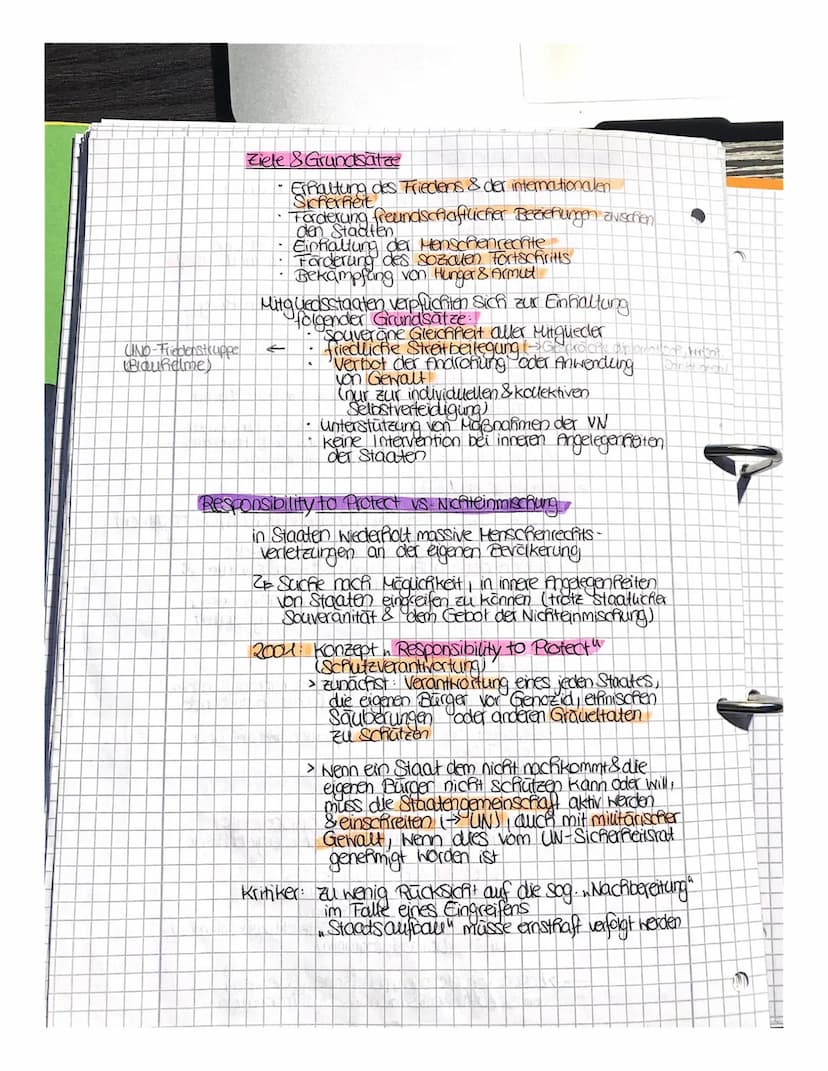 Ziele & Grundsätze
· Erhaltung des Friedens & der internationalen
Sicherheit
· Förderung freundschaftlicher Beziehungen zwischen
den Staaten
· Einhaltung der Menschenrechte
· Förderung des sozialen Fortschritts
· Bekämpfung von Hunger & Armut
Mitgliedsstaaten verpflichten sich zur Einhaltung
folgender Grundsätze:
· souveräne Gleichheit aller Mitglieder
UNO-Friedenstruppe ← · friedliche Streitbeilegung (→ Gespräche
(Blauhelme)
· Verbot der Androhung oder Anwendung
von Gewalt
(nur zur individuellen & kollektiven
Selbstverteidigung)
· Unterstützung von Maßnahmen der VN
· keine Intervention bei inneren Angelegenheiten
der Staaten
Responsibility to Protect vs. Nichteinmischung
in Staaten wiederholt massive Menschenrechts-
verletzungen an der eigenen Bevölkerung
↳ Suche nach Möglichkeit, in innere Angelegenheiten
von Staaten eingreifen zu können (trotz staatlicher
Souveränität & dem Gebot der Nichteinmischung)
2001: Konzept „Responsibility to Protect"
(Schutzverantwortung)
> zunächst: Verantwortung eines jeden Staates,
die eigenen Bürger vor Genozid, ethnischen
Säuberungen oder anderen Gräueltaten
zu schützen
> Wenn ein Staat dem nicht nachkommt & die
eigenen Bürger nicht schützen kann oder will,
muss die Staatengemeinschaft aktiv werden
& einschreiten (→ UN), auch mit militärischer
Gewalt, wenn dies vom UN-Sicherheitsrat
genehmigt worden ist
Kritiker: zu wenig Rücksicht auf die sog. „Nachbereitung"
im Falle eines Eingreifens
„Staatsaufbau" müsse ernsthaft verfolgt werden